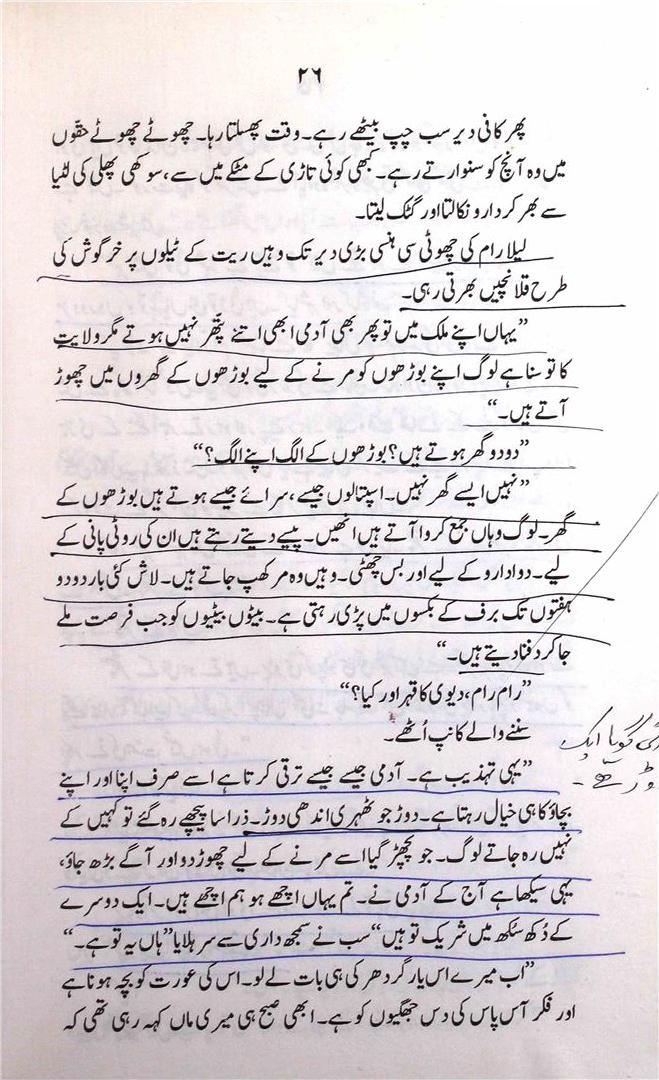 ۲۶
پھر کافی دیر سب چپ بیٹھے رہے۔ وقت پھسلتا رہا۔ چھوٹے چھوٹے حقّوں
میں وہ آنچ کو سنوارتے رہے۔ کبھی کوئی تاڑی کے مٹکے میں سے، سوکھی پھلی کی لٹیا
سے بھر کر دارو نکالتا اور گٹک لیتا۔
لیلا رام کی چھوٹی سی ہنسی بڑی دیر تک وہیں ریت کے ٹیلوں پر خرگوش کی
طرح قلانچیں بھرتی رہی۔
”یہاں اپنے ملک میں تو پھر بھی آدمی ابھی اتنے پتّھر نہیں ہوتے مگر ولایت
کا تو سنا ہے لوگ اپنے بوڑھوں کو مرنے کے لیے بوڑھوں کے گھروں میں چھوڑ
آتے ہیں۔“
”دو دو گھر ہوتے ہیں؟ بوڑھوں کے الگ اپنے الگ؟“
”نہیں ایسے گھر نہیں۔ اسپتالوں جیسے، سرائے جیسے ہوتے ہیں بوڑھوں کے
گھر۔ لوگ وہاں جمع کروا آتے ہیں انھیں۔ پیسے دیتے رہتے ہیں ان کی روٹی پانی کے
لیے۔ دوا دارو کے لیے اور بس چھٹی۔ وہیں وہ مر کھپ جاتے ہیں۔ لاش کئی بار دو دو
ہفتوں تک برف کے بکسوں میں پڑی رہتی ہے۔ بیٹوں بیٹیوں کو جب فرصت ملے
جا کر دفنا دیتے ہیں۔“
”رام رام، دیوی کا قہر اور کیا؟“
سننے والے کانپ اُٹھے۔
گویا ایک
”یہی تہذیب ہے۔ آدمی جیسے جیسے ترقی کرتا ہے اسے صرف اپنا اور اپنے
بچاؤ کا ہی خیال رہتا ہے۔ دوڑ جو ٹھہری اندھی دوڑ۔ ذرا سا پیچھے رہ گئے تو کہیں کے
نہیں رہ جاتے لوگ۔ جو پچھڑ گیا اسے مرنے کے لیے چھوڑ دو اور آگے بڑھ جاؤ،
یہی سیکھا ہے آج کے آدمی نے۔ تم یہاں اچھے ہو ہم اچھے ہیں۔ ایک دوسرے
کے دُکھ سُکھ میں شریک تو ہیں“ سب نے سمجھ داری سے سر ہلایا ”ہاں یہ تو ہے۔“
”اب میرے اس یار گردھر کی ہی بات لے لو۔ اس کی عورت کو بچہ ہونا ہے
اور فکر آس پاس کی دس جھگیوں کو ہے۔ ابھی صبح ہی میری ماں کہہ رہی تھی کہ